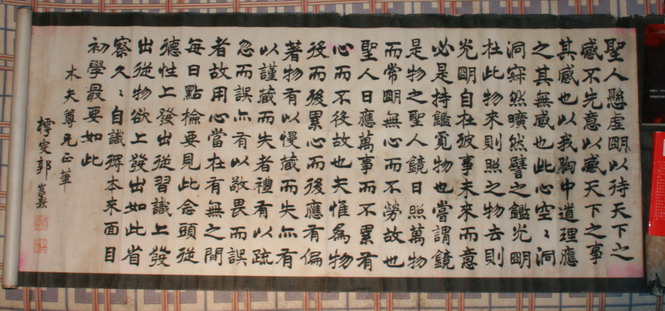 聖人懸虛明以待天下之
感不先意以感天下之事
其感也以我胸中道理應
之其無感也此心空〻洞
洞寂然曠然譬之鑑光明
在此物來則照之物去則
光明自在彼事未來而意
必是持鑑覓物也嘗謂鏡
是物之聖人鏡日照萬物
而常明無心而不勞故也
聖人日應萬事而不累有
心而不役故也夫惟為物
役而後累心而後應有偏
著物有以慢藏而失亦有
以謹藏而失者禮有以疏
忽而誤亦有以敬畏而誤
者故用心當在有無之間
每日點檢要見此念頭從
德性上發出從習識上發
出從物欲上發出如此省
察久〻自識得本來面目
初學最要如此
木夫尊兄正筆
樗叟郭嵩燾